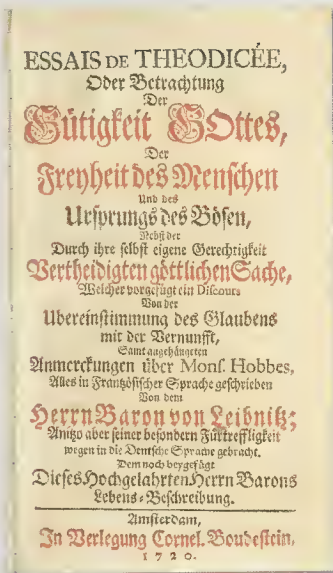 ESSAIS DE THEODICÉE,
Oder Betrachtung
Der
Gütigkeit GOttes,
Der
Freyheit des Menschen
Und des
Ursprungs des Bösen,
Nebst der
Durch ihre selbst eigene Gerechtigkeit
Vertheidigten göttlichen Sache,
Welcher vorgefügt ein Discours
Von der
Ubereinstimmung des Glaubens
mit der Vernunfft,
Samt angehängten
Anmerckungen über Monſ. Hobbes,
Alles in Frantzösischer Sprache geschrieben
Von dem
Herrn Baron von Leibnitz;
Anitzo aber seiner besondern Fürtreffligkeit
wegen in die Deutsche Sprache gebracht.
Dem noch beygefügt
Dieses Hochgelahrten Herrn Barons
Lebens-Beschreibung.
Amsterdam,
In Verlegung Cornel. Boudestein,
1720.